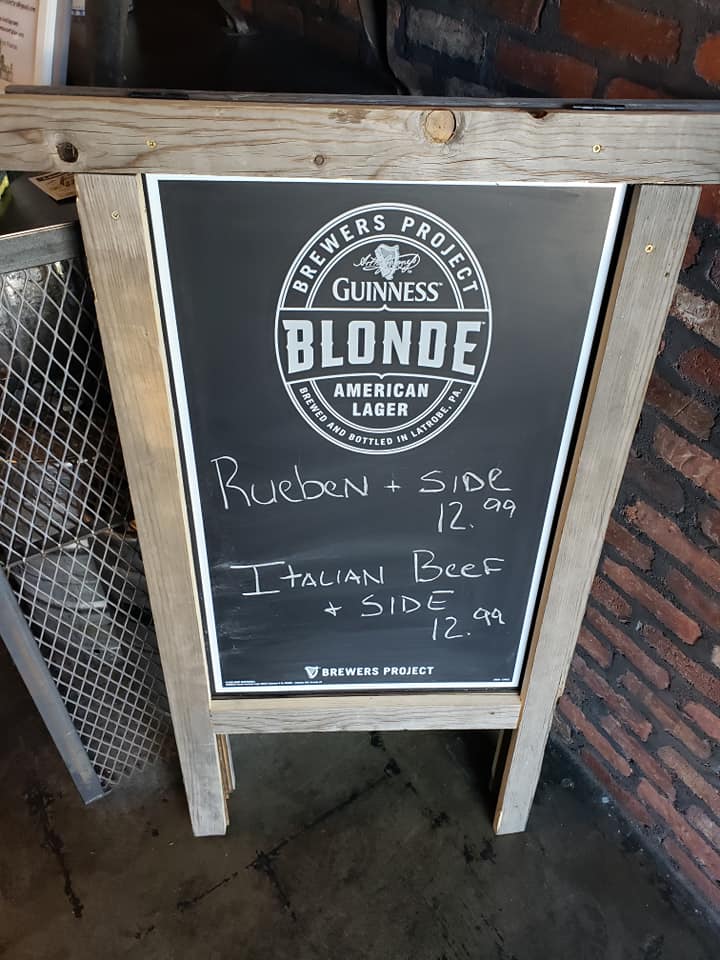 BREWERS PROJECT
GUINNESS™
BLONDE™
AMERICAN
LAGER
BREWED AND BOTTLED IN LATROBE, PA.
RuebeN + SIDe
12.99
ITALIAN BeeF
+ SIDE
12.99
BREWERS PROJECT